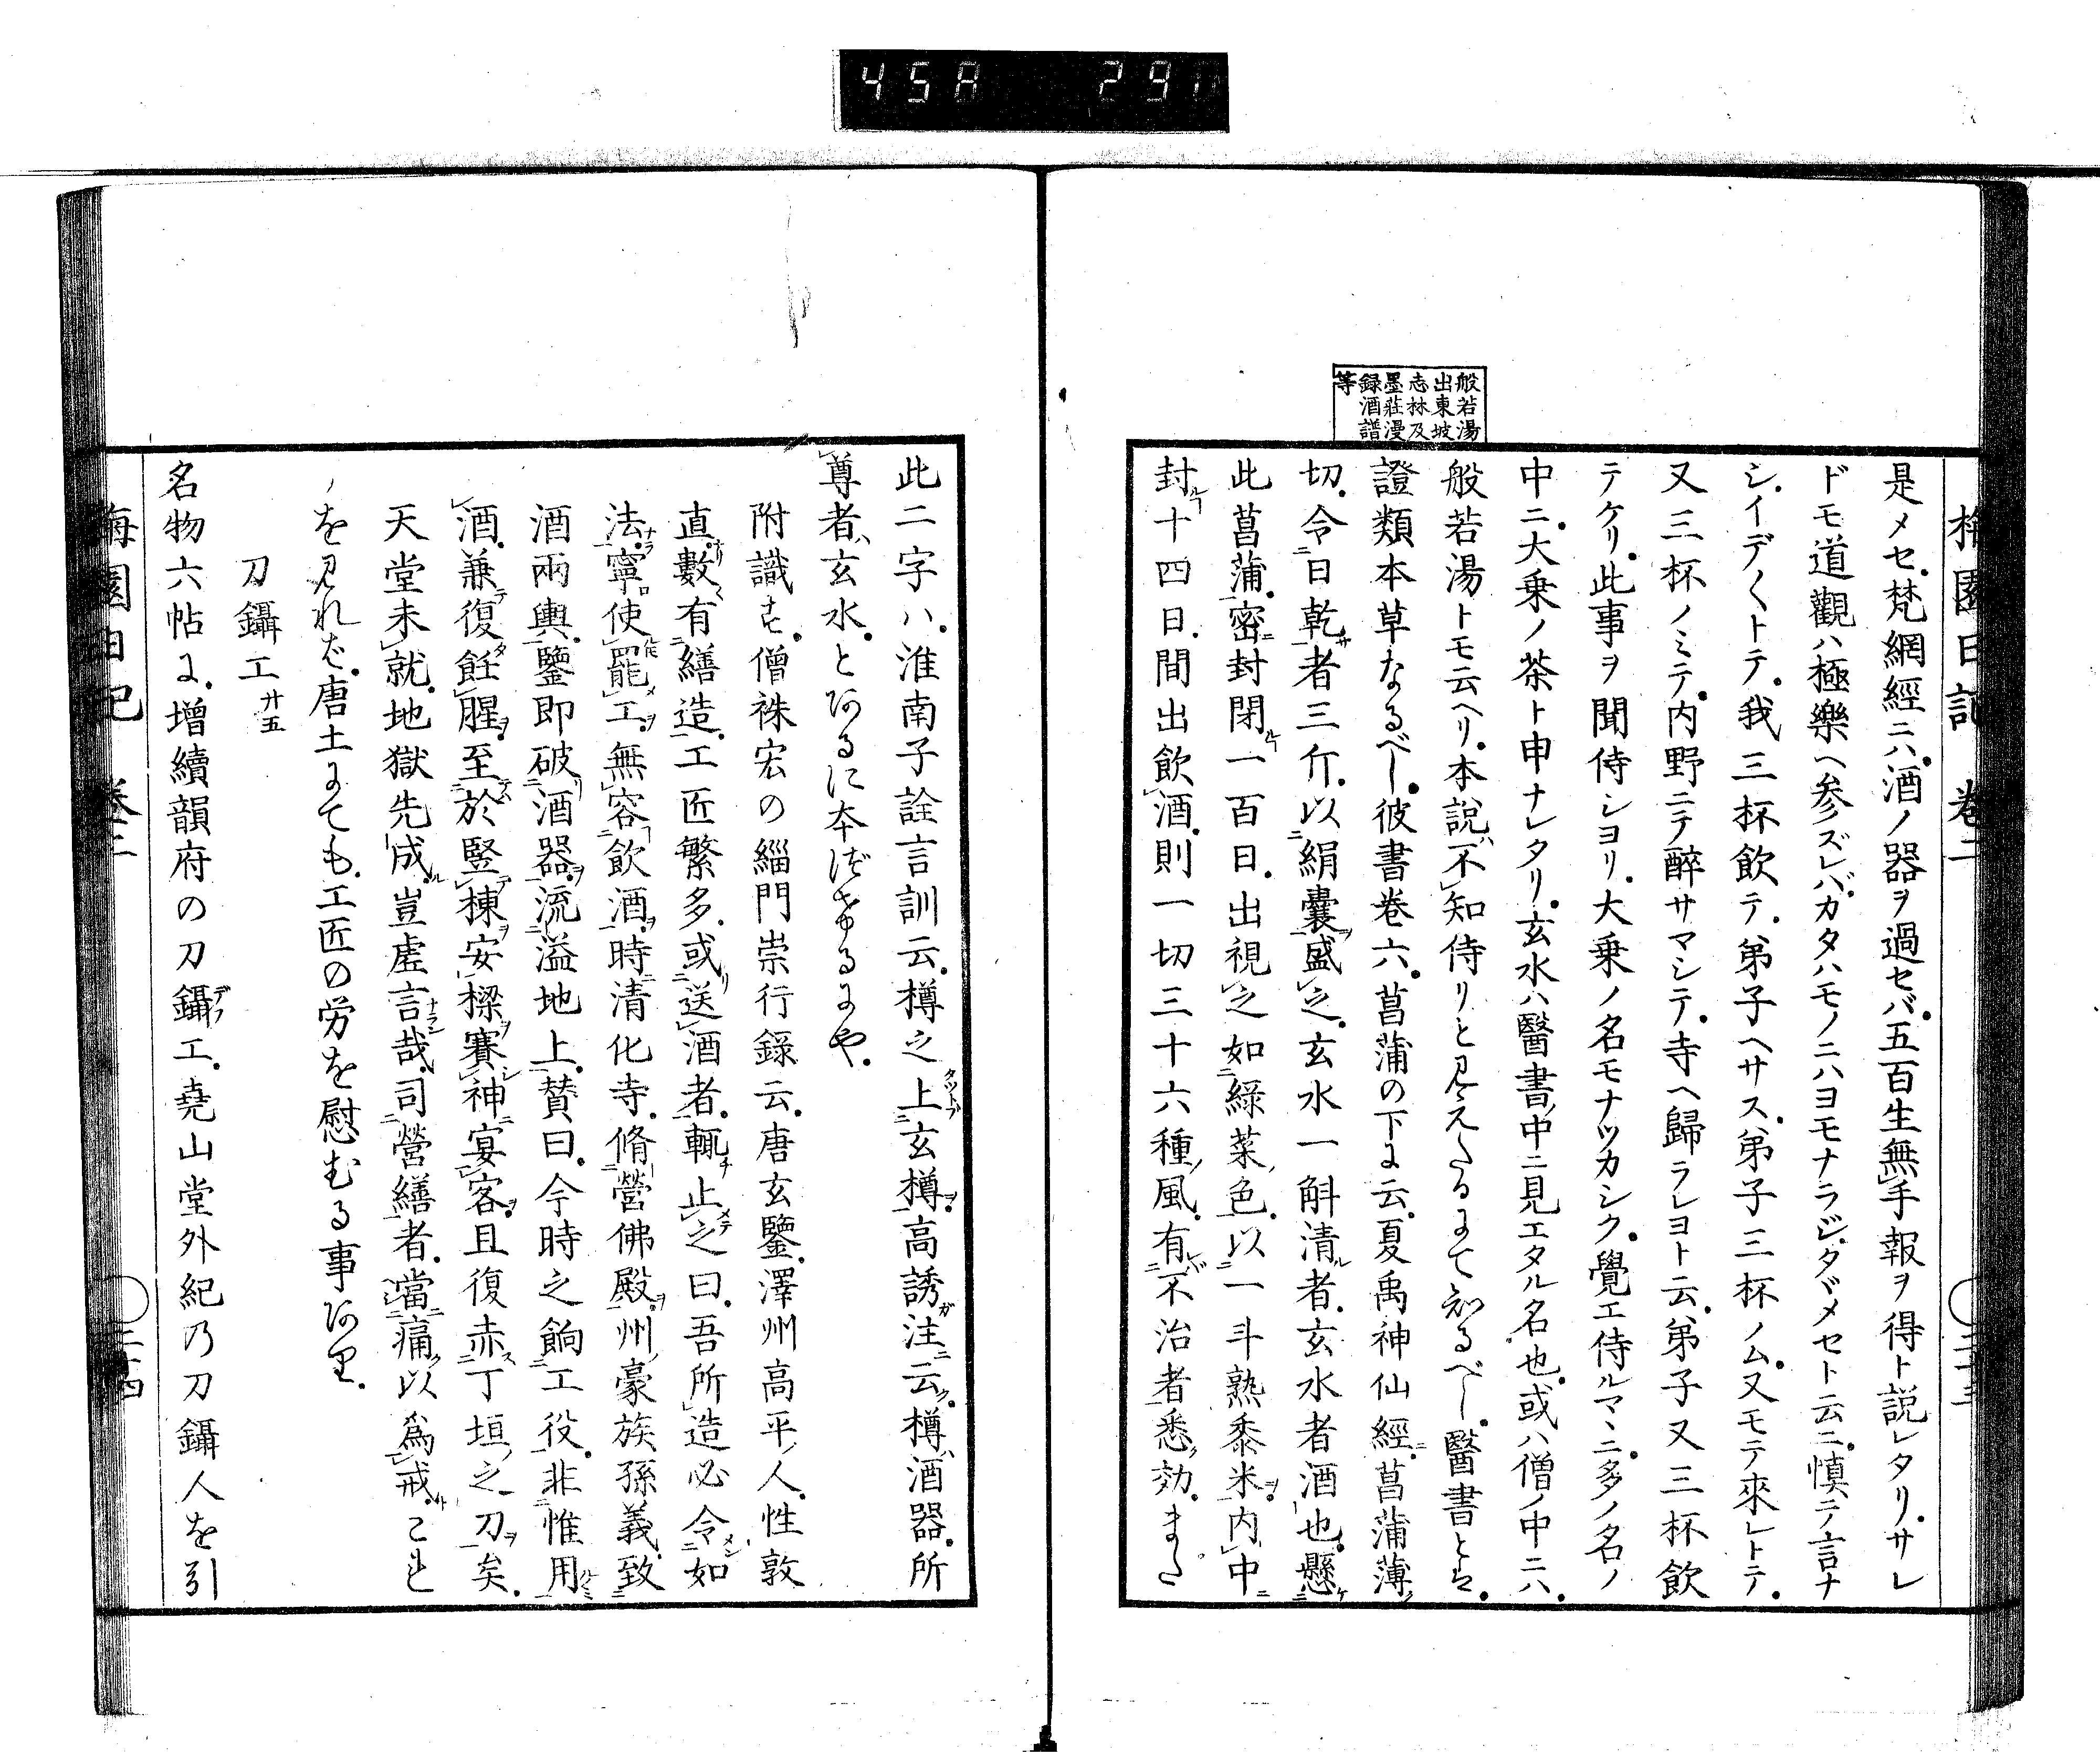 458 291
般若湯
出東坡
志林及
墨莊漫
録酒譜
等
梅園日記 卷二
是メセ梵網經ニハ酒ノ器ヲ過セバ五百生無手報ヲ得ト説レタリサレ
ドモ道觀ハ極樂ヘ参ズレバカタハモノニハヨモナラジタヾメセト云ニ慎テ言ナ
シイデ〳〵トテ我三杯飲テ弟子ヘサス弟子三杯ノム又モテ來レトニテ
又三杯ノミテ内野ニテ醉サマシテ寺ヘ歸ラレヨト云弟子又三杯飲
テケリ此事ヲ聞侍シヨリ大乗ノ名モナツカシク覺エ侍ルマヽニ多ノ名ノ
中ニ大乗ノ茶ト申ナレタリ玄水ハ醫書ノ中ニ見エタル名也或ハ僧ノ中ニハ
般若湯トモ云ヘリ本説ハ不知侍リと見えたるにて知るべし醫書とは
證類本草なるべし彼書卷六菖蒲の下に云夏禹神仙經ニ菖蒲薄ク
切令日乾者三斤以絹嚢盛之玄水一斛清者玄水者酒也懸
此菖蒲密封閉一百日出視之如綠菜色以一斗熟黍米内中
封十四日間出飲酒則一切三十六種風有不治者悉効また
此二字ハ淮南子詮言訓云樽之上玄樽高誘注云樽酒器所
尊者玄水とあるに本づきたるにや
附識す僧袾宏の緇門崇行錄云唐玄鑒澤州高平人性敦
直數有繕造工匠繁多或送酒者輒止之曰吾所造必令如
法寧使罷工無容飲酒時清化寺脩營佛殿州豪族孫義致
酒兩輿鑒即破酒器流溢地上贊曰今時之餉工役非惟用
酒兼復飪腥至於竪棟安樑賽神宴客且復赤丁垣之刀矣
天堂未就地獄先成豈虛言哉司營繕者當痛以為戒これ
を見れば唐土にても工匠の労を慰むる事あり
刀鑷工 廿五
名物六帖に增續韻府の刀鑷工堯山堂外紀乃刀鑷人を引
梅園日記 卷二 二十四